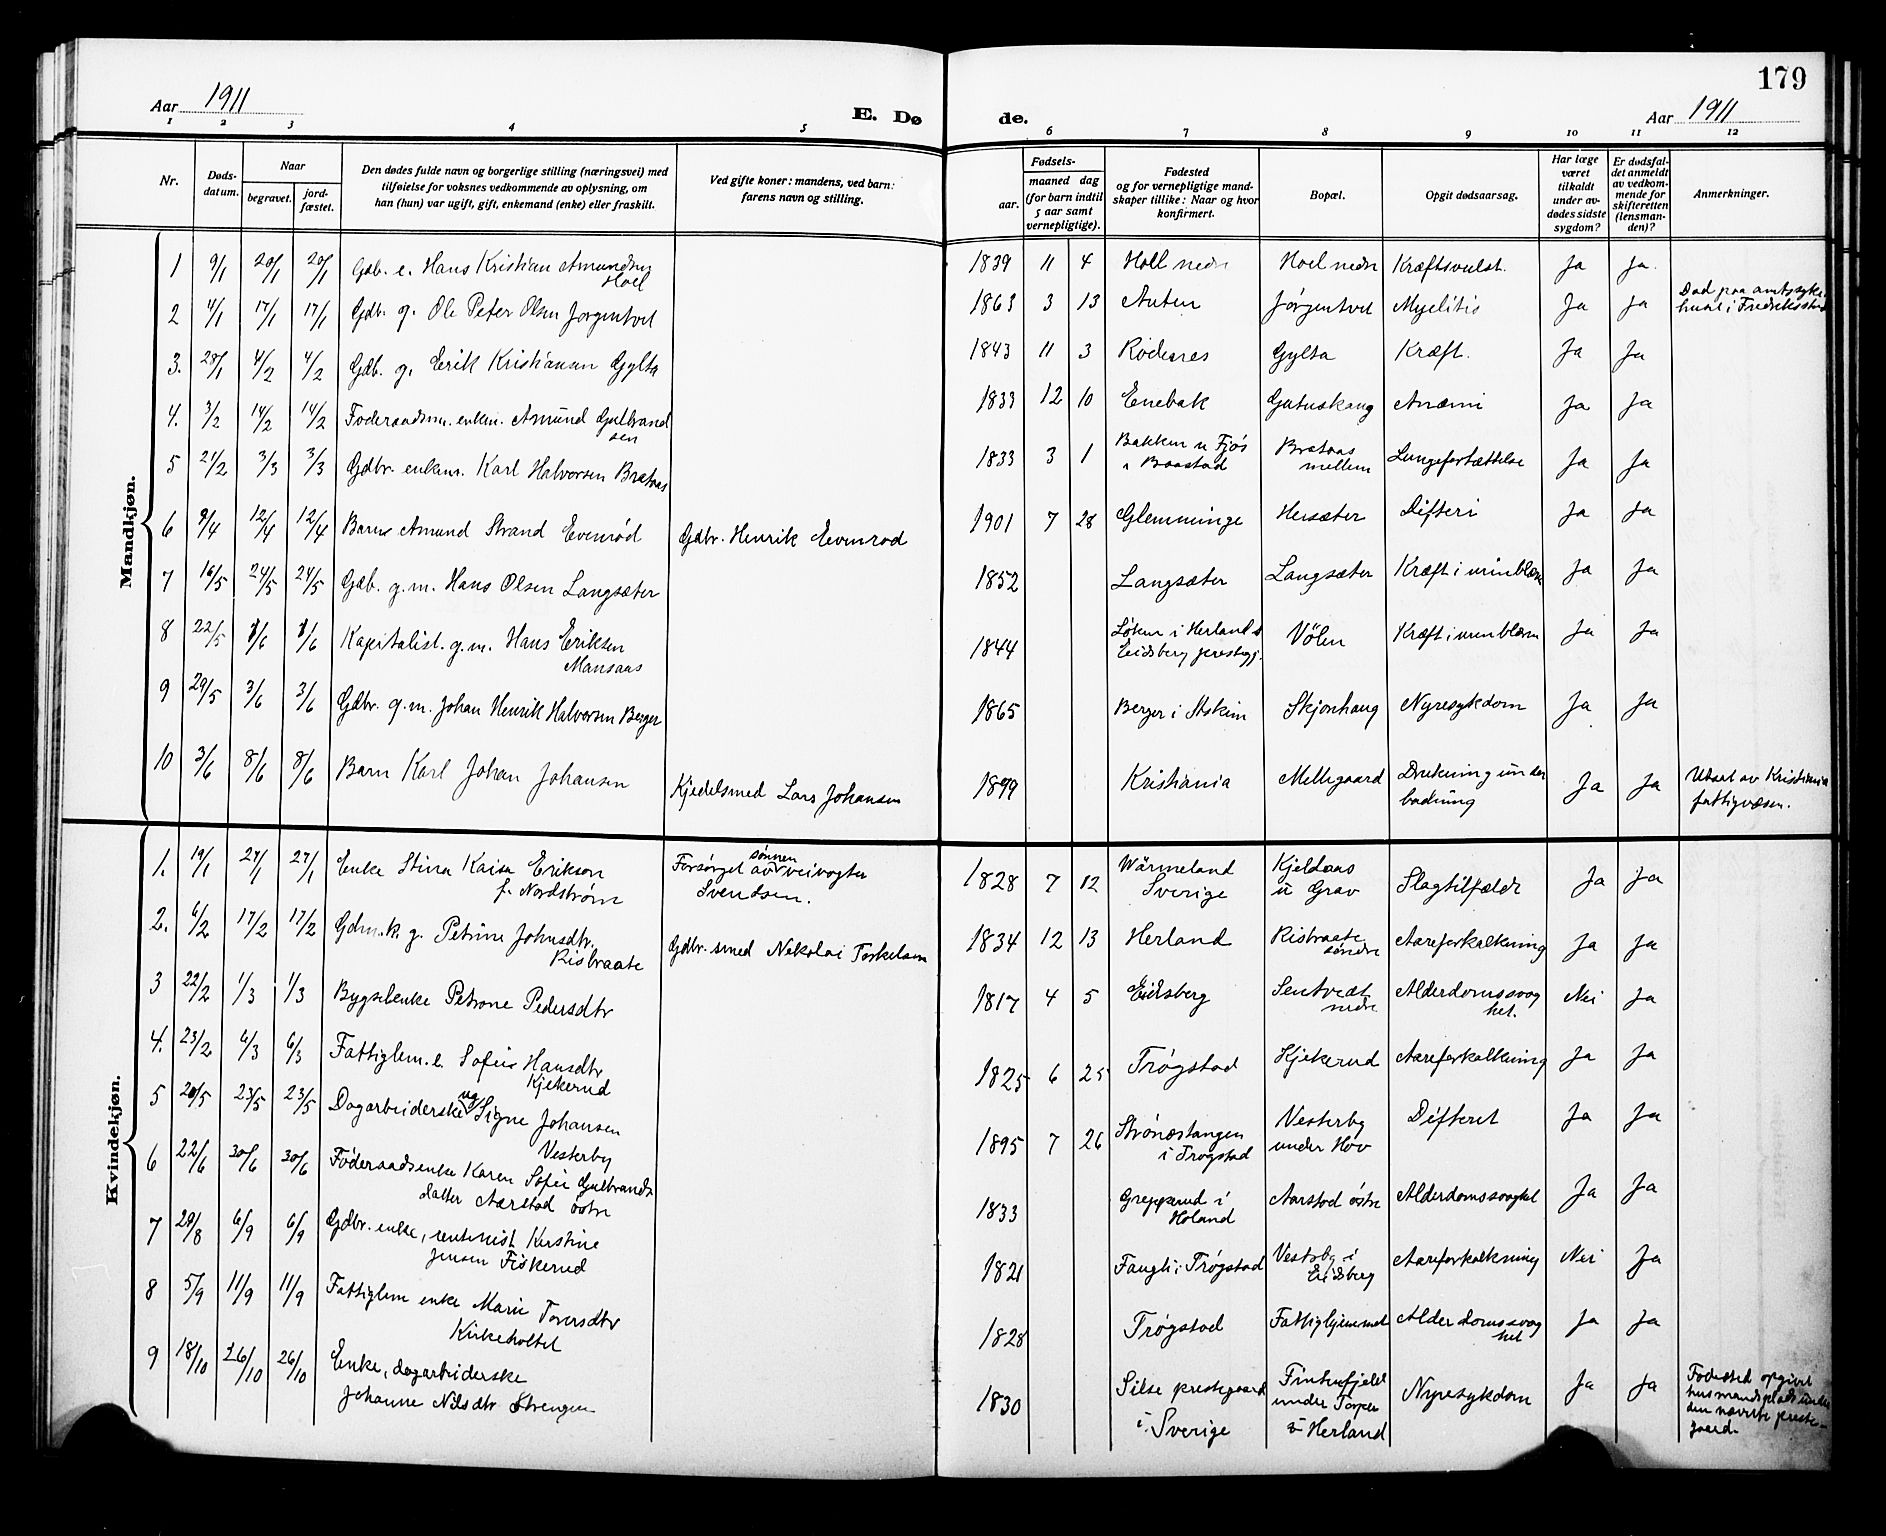 179
Aar 1911
E. Dø
de.
Aar 1911
1 2 3 4 5 6 7 8 9 10 11 12
Nr.
Døds-
datum.
Naar
begravet.
jord-
fæstet.
Den dødes fulde navn og borgerlige stilling (næringsvei) med
tilføielse for voksnes vedkommende av oplysning, om
han (hun) var ugift, gift, enkemand (enke) eller fraskilt.
Ved gifte koner: mandens, ved barn:
farens navn og stilling.
Fødsels-
aar.
maaned dag
(for barn indtil
5 aar samt
vernepligtige).
Fødested
og for vernepligtige mand-
skaper tillike: Naar og hvor
konfirmert.
Bopæl.
Opgit dødsaarsag.
Har læge
været
tilkaldt
under av-
dødes sidste
sygdom?
Er dødsfal-
det anmeldt
av vedkom-
mende for
skifteretten
(lensman-
den)?
Anmerkninger.
Mandkjøn.
1 9/1 20/1 20/1 Gdb. e. Hans Kristian Amundsen
Hoel
1839 11 4 Hoel nedre Hoel nedre Kræftsvulst. Ja Ja.
2 4/1 17/1 17/1 Gdbr. g. Ole Peter Olsen Jørgentvet
1863 3 13 Auten Jørgentvet Myelitis Ja Ja
Død paa amtssyke-
huset i Fredriksstad
3. 28/1 4/2 4/2 Gdb. g. Erik Kristiansen Gylta
1843 11 3 Rødenes Gylta Kræft. Ja Ja
4. 3/2 14/2 14/2 Føderaadsm. enkem. Amund Gulbrand
sen
1833 12 10 Enebak Gutuskaug Anæmi Ja Ja
5 21/2 3/3 3/3 Gdbr. enkem. Karl Halvorsen Brataas
1833 3 1 Bakken u Fjøs
i Baastad
Brataas
mellem
Lungefortættelse Ja Ja
6 9/4 12/4 12/4 Barn Amund Strand Evenrød Gdbr. Henrik Evenrød
1901 7 28 Glemminge Hersæter Difteri Ja Ja
7 16/5 24/5 24/5 Gdb. g.m. Hans Olsen Langsæter
1852 Langsæter Langsæter Kræft i urinblæren Ja Ja
8 22/5 1/6 1/6 Kapitalist. g.m. Hans Eriksen
Mansaas
1844 Løken i Herland s
Eidsberg prestegj.
Vølen Kræft i urinblæren Ja Ja
9 29/5 3/6 3/6 Gdbr. g.m. Johan Henrik Halvorsen Berger
1865 Berger i Askim Skjønhaug Nyresykdom Ja Ja
10 3/6 8/6 8/6 Barn Karl Johan Johansen
Kjedelsmed Lars Johansen
1899 Kristiania Mellegaard Drukning under
badning
Ja Ja
Utsat av Kristiania
fattigvæsen.
Kvindekjøn.
1. 19/1 27/1 27/1 Enke Stina Kaisa Erikson
f. Nordstrøm
Forsørget av sønnen veivogter
Svendsen.
1828 7 12 Wärmeland
Sverige
Kjeldaas
u Grav
Slagtilfælde Ja Ja
2. 6/2 17/2 17/2 Gdm.k. g. Petrine Johnsdtr.
Risbraate
Gdbr. smed Nikolai Torkelsen
1834 12 13 Herland Risbraate
søndre
Aareforkalkning Ja Ja
3 22/2 1/3 1/3 Bygselenke Petrone Pedersdtr
1817 4 5 Eidsberg Sentvedt
nedre
Alderdomssvag
het.
Nei Ja
4. 23/2 6/3 6/3 Fattiglem. e. Sofie Hansdtr
Kjekerud
1825 6 25 Trøgstad Kjekerud Aareforkalkning Ja Ja
5 20/5 23/5 23/5 Dagarbeiderske ug. Signe Johansen
Vesterby
1895 7 26 Strønæstangen
i Trøgstad
Vesterby
under Hov
Difterit Ja Ja
6 22/6 30/6 30/6 Føderaadsenke Karen Sofie Gulbrands
datter Aarstad østre
1833 Grepperud i
Høland
Aarstad østre Alderdomssvaghet Ja Ja
7 29/8 6/9 6/9 Gdbr. enke, rentenist Kerstine
Jensen Fiskerud
1821 Fangli i Trøgstad Vestby i
Eidsberg
Aareforkalkning Nei Ja
8 5/9 11/9 11/9 Fattiglem enke Marie Toversdtr
Kirkeholtet
1828 Trøgstad Fattighjemmet Alderdomssvag
het
Ja Ja
9 18/10 26/10 26/10 Enke, dagarbeiderske
Johanne Nilsdtr Strengen
1830 Silse prestegaard
i Sverige
Fintenfjeld
under Torper
i Herland
Nyresykdom Ja Ja
Fødested opgivt
husmandsplads under
den nævnte preste-
gaard.